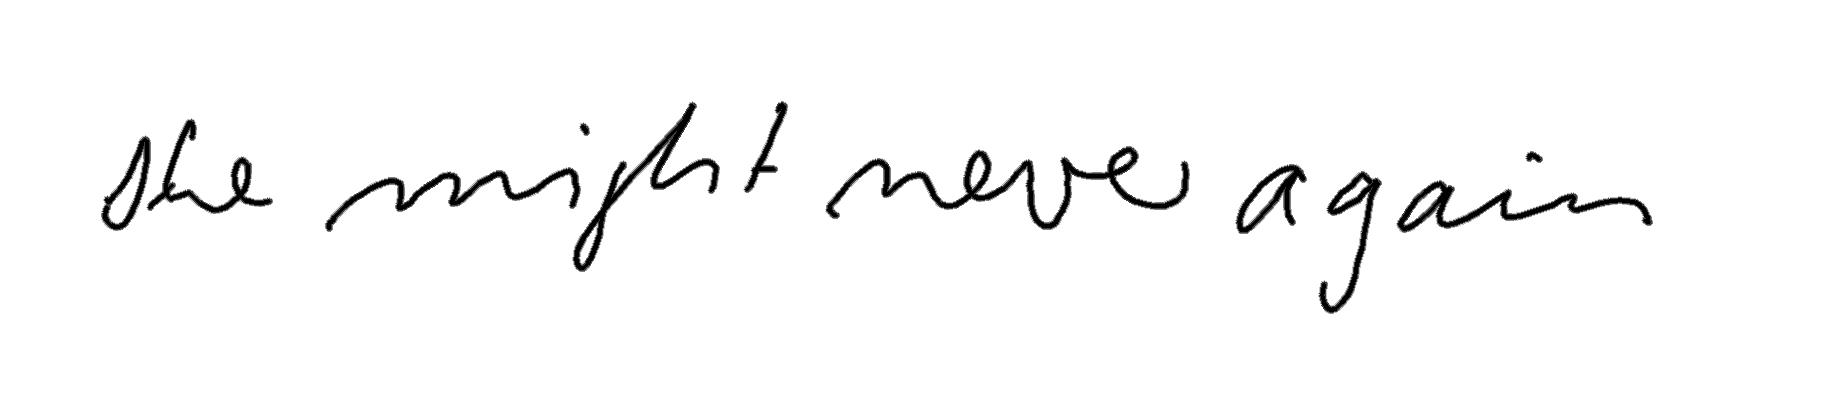 she might never again